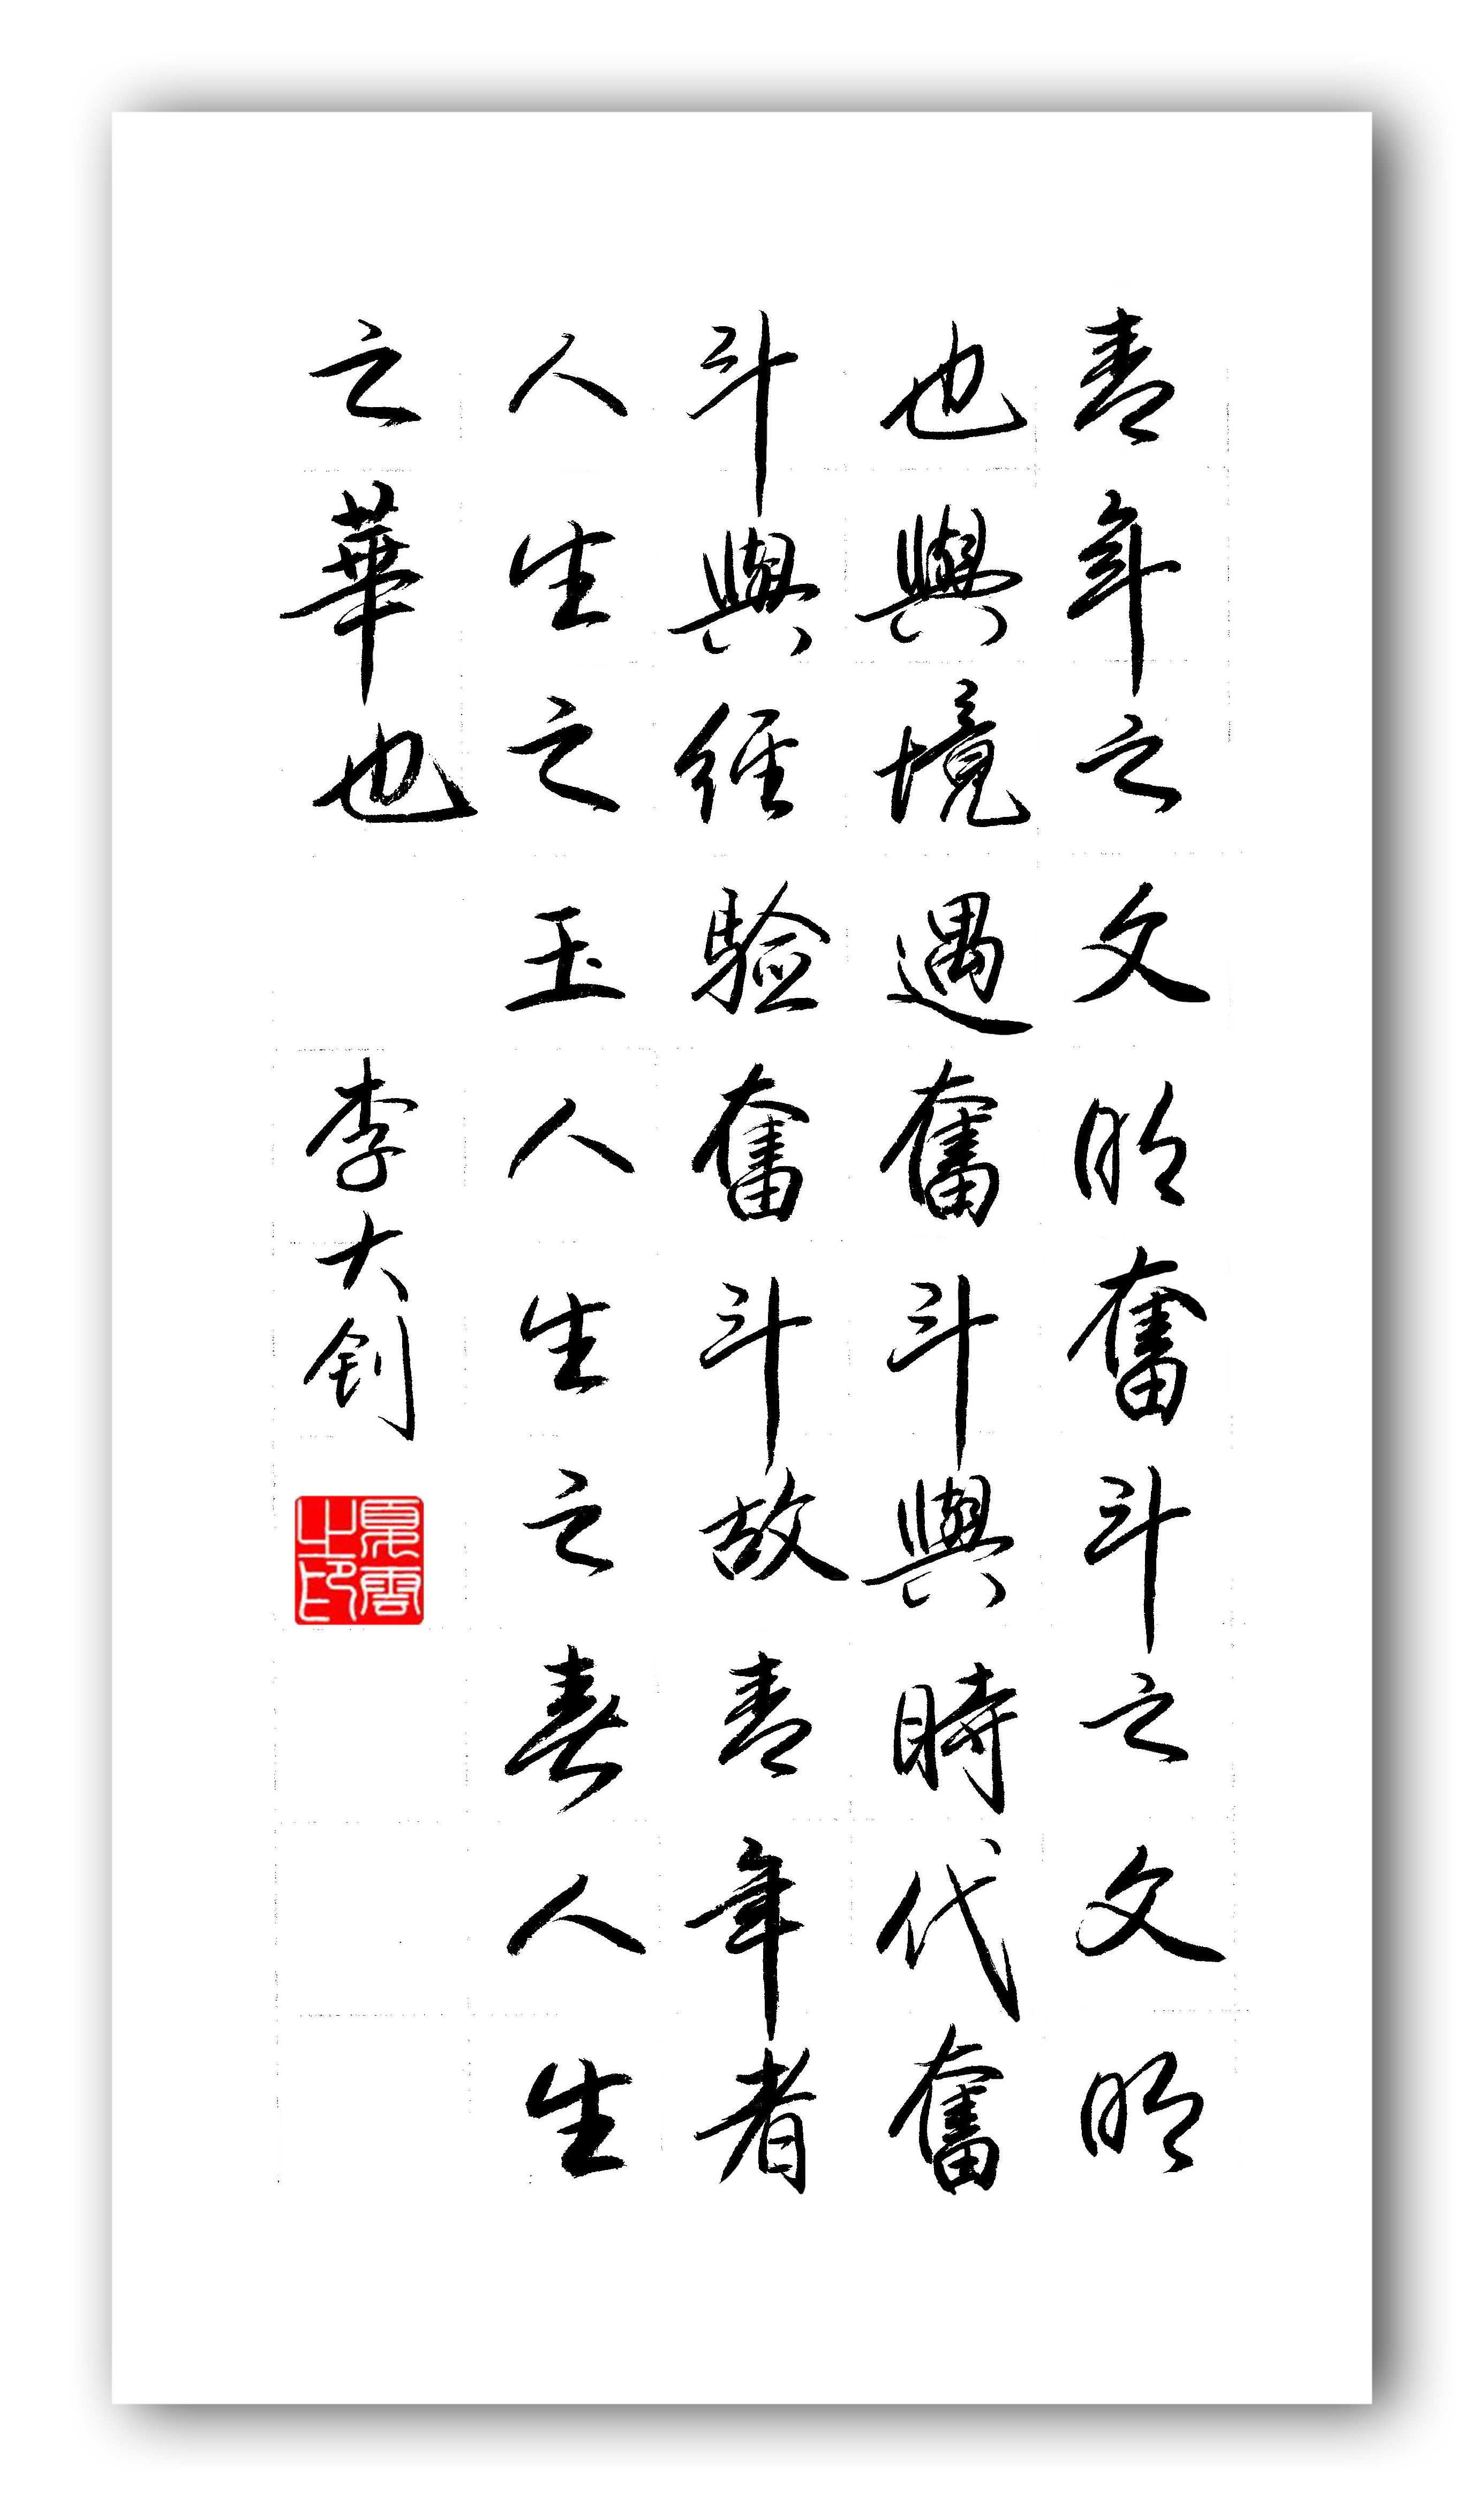 青年之文明奮斗之文明
也與境遇奮斗與時代奮
斗與经验奮斗故青年者
人生之王人生之春人生
之華也
李大钊